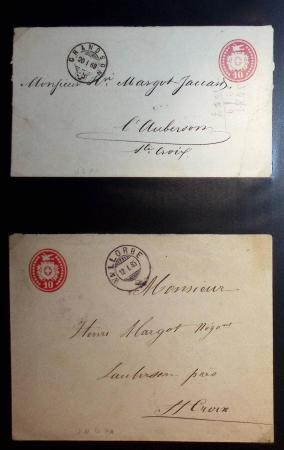 GRANDSON
20 I 68
10
Monsieur Hri Margot-Jaccard,
l'Auberson
Ste Croix
10
VALLORBE
12.I.83
Monsieur
Henri Margot Négont
Lauberson près
St Croix